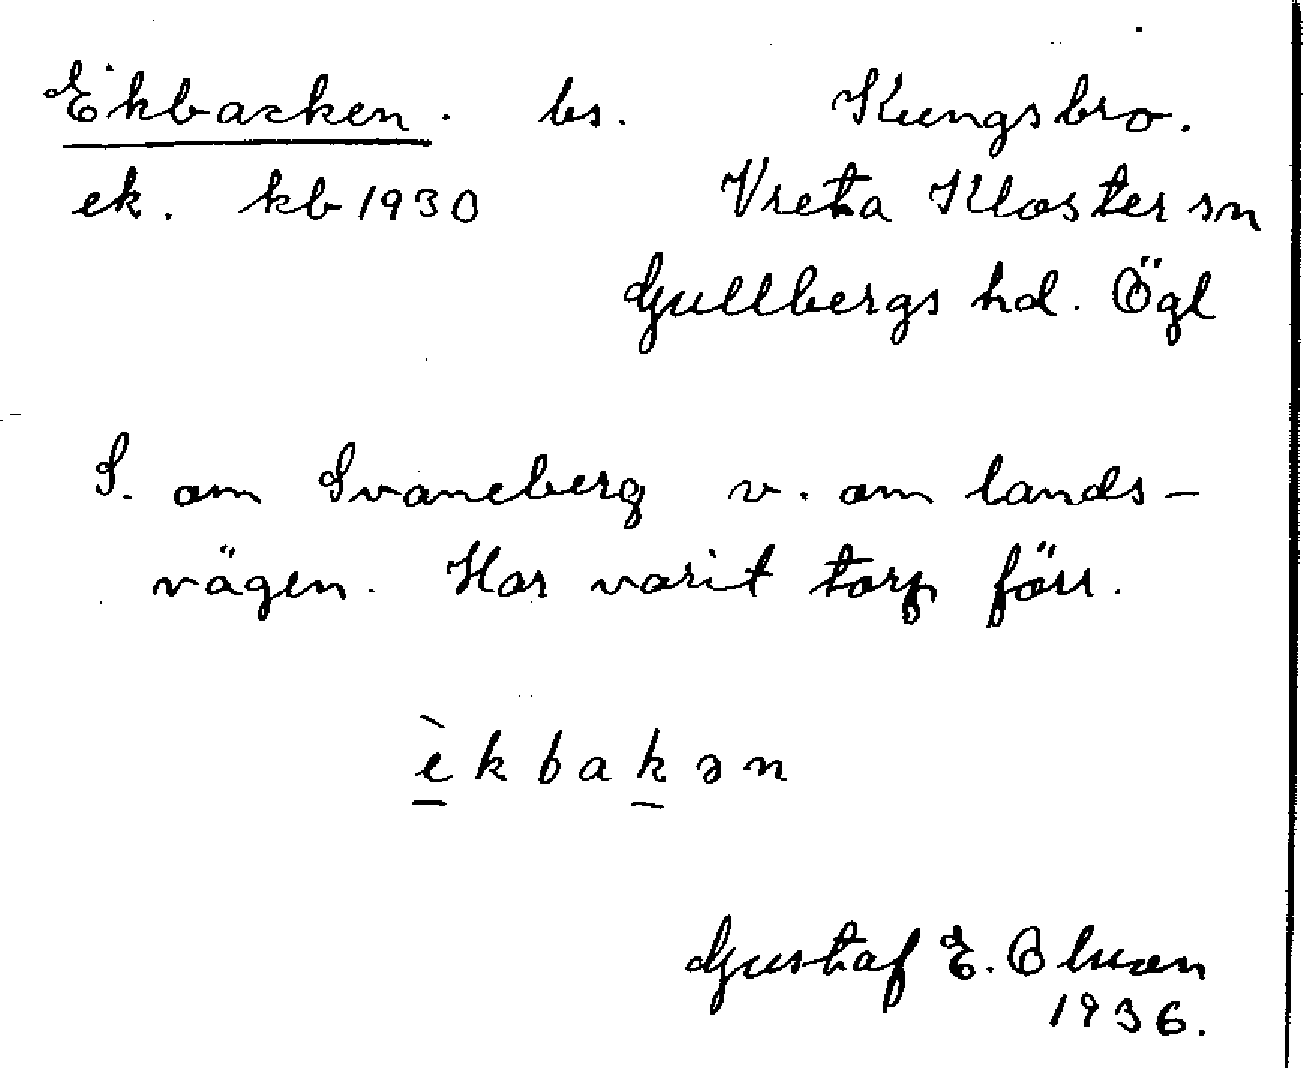 Ekbacken. bs. Kungsbro.
ek. kb 1930 Vreta Kloster sn
Gullbergs hd. Ögl
S. om Svaneberg v. om lands-
vägen. Har varit torp förr.
èkbakən
Gustaf E. Olsson
1936.